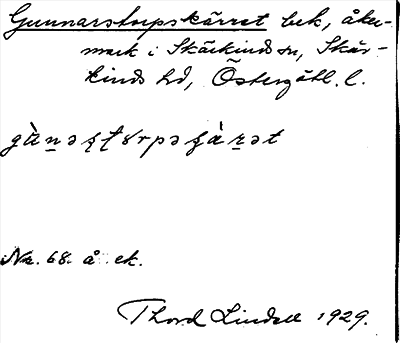 Gunnarstorpskärret bek, åker-
mark i Skärkinds sn, Skär-
kinds hd, Östergötl. l.
gànəʂtorpəʂàrət
Nr. 68. å ek.
Thord Lindell 1929.